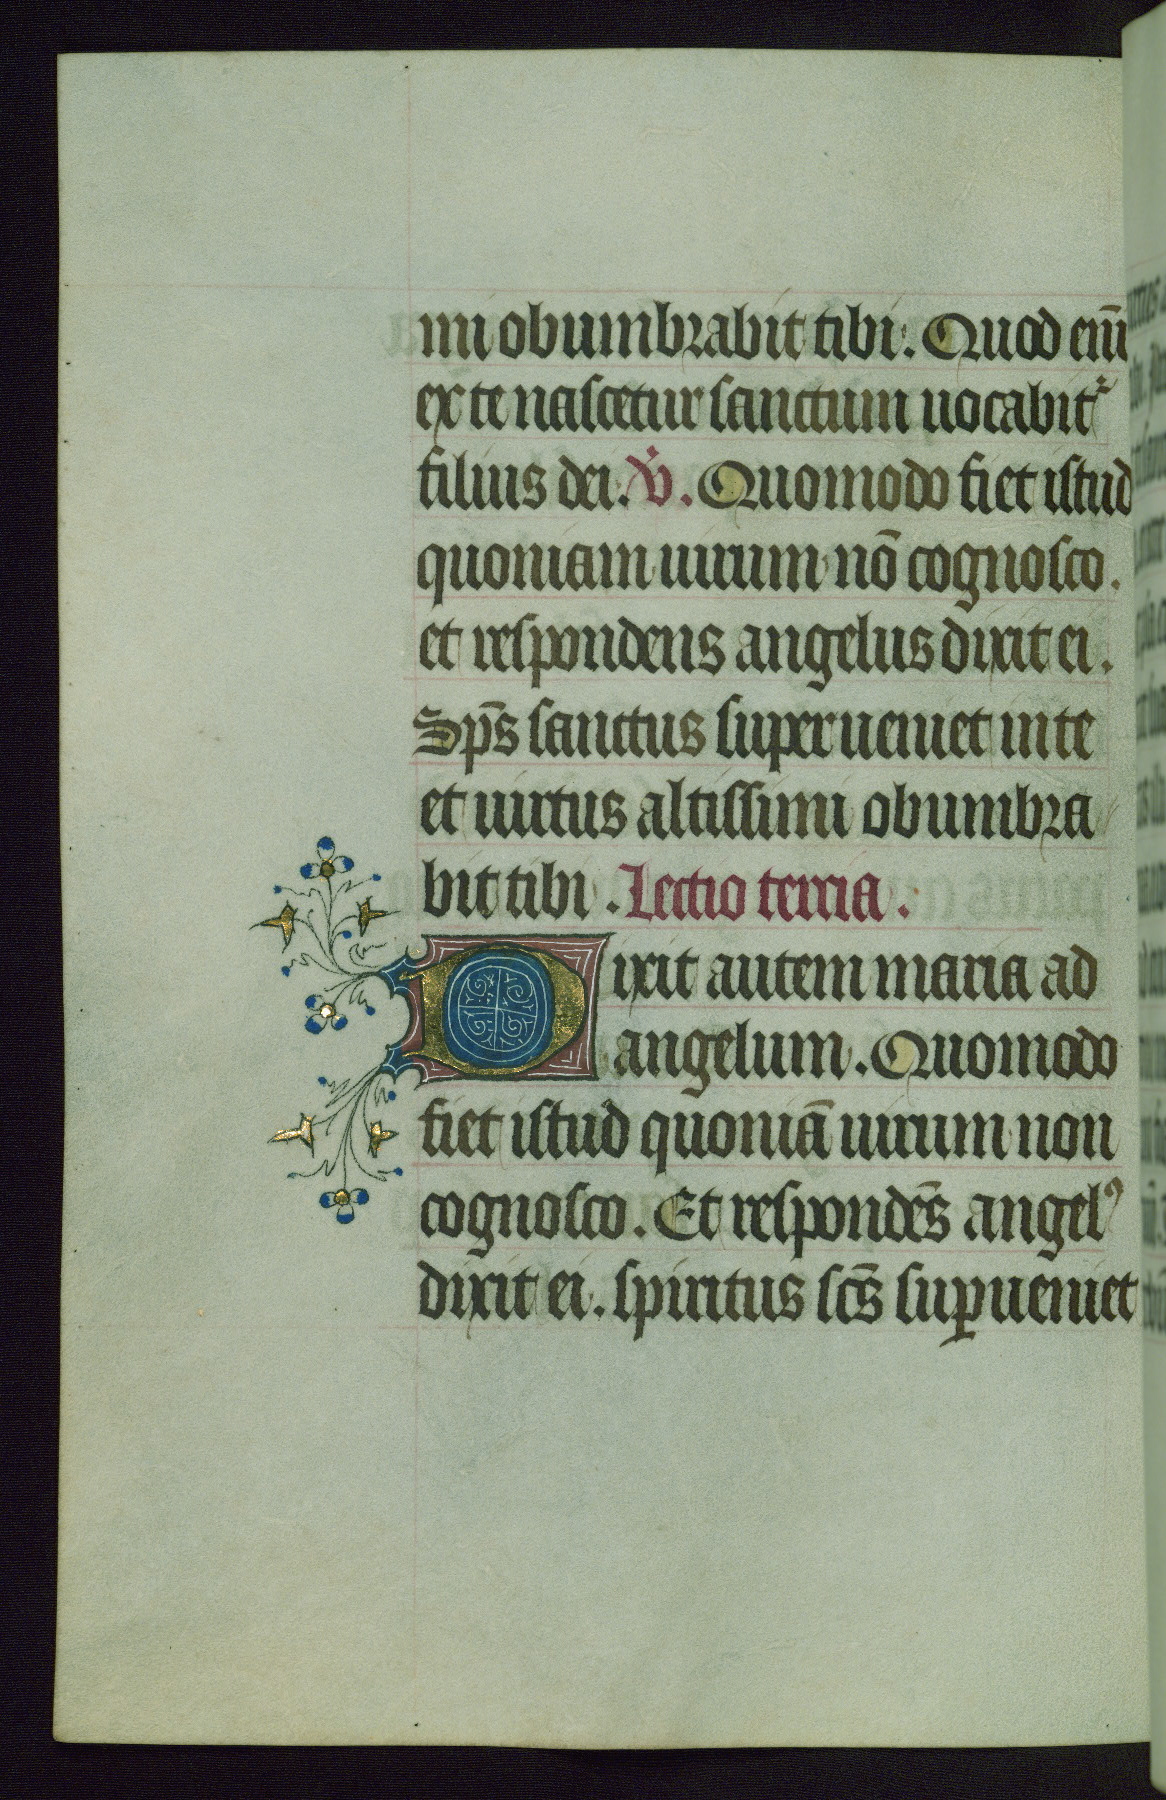 mi obumbrabit tibi. Quod eni̅
ex te nascetur sanctum uocabit᷑
filius dei. V̇. Quomodo fiet istud
quoniam uirum no̅ cognosco.
et respondens angelus dixit ei.
Sp̅s sanctus superueniet in te
et uirtus altissimi obumbra
bit tibi. Lectio tercia.
Dixit autem maria ad
angelum. Quomodo
fiet istud quonia̅ uirum non
cognosco. Et responde̅s angelꝰ
dixit ei. spiritus sc̅s suꝑueniet